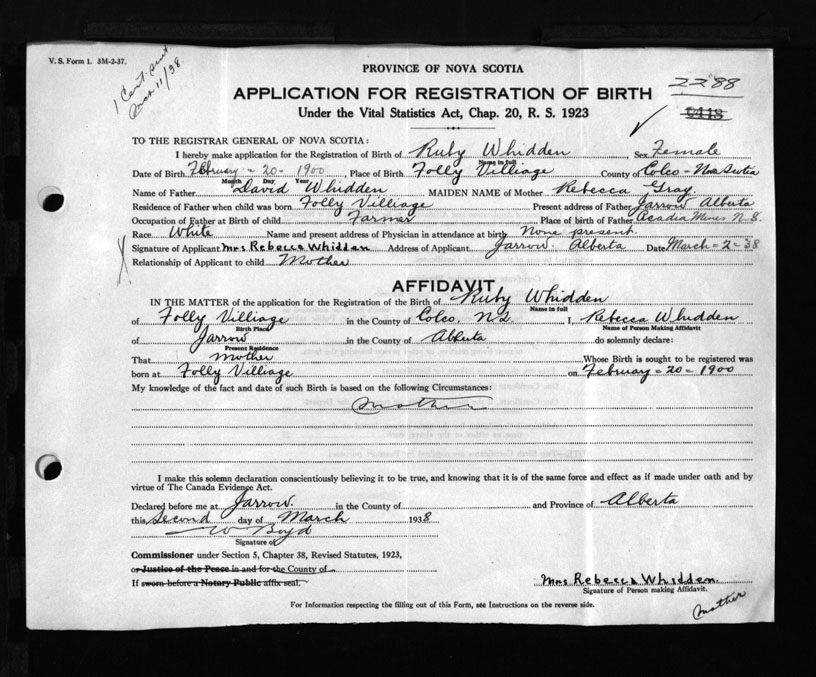 V. S. Form 1. 3M-2-37.
1 Cent. sent
Mar 11/38.
PROVINCE OF NOVA SCOTIA
2288
APPLICATION FOR REGISTRATION OF BIRTH
Under the Vital Statistics Act, Chap. 20, R. S. 1923
TO THE REGISTRAR GENERAL OF NOVA SCOTIA:
I hereby make application for the Registration of Birth of Ruby Whidden, Sex Female
Name in full
Date of Birth February - 20 - 1900, Place of Birth Folly Villiage County of Colco - Nova Scotia
Month Day Year
Name of Father David Whidden MAIDEN NAME of Mother Rebecca Gray
Residence of Father when child was born Folly Villiage Present address of Father Jarrow Alberta
Occupation of Father at Birth of child Farmer Place of birth of Father Acadia Mines N.S.
Race White Name and present address of Physician in attendance at birth None present
Signature of Applicant Mrs Rebecca Whidden Address of Applicant Jarrow. Alberta Date March - 2 - 38
Relationship of Applicant to child Mother
AFFIDAVIT
IN THE MATTER of the application for the Registration of the Birth of Ruby Whidden
Name in full
of Folly Villiage in the County of Colco, N.S. I, Rebecca Whidden
Birth Place Name of Person Making Affidavit
of Jarrow in the County of Alberta do solemnly declare:
Present Residence
That mother Whose Birth is sought to be registered was
born at Folly Villiage on February - 20 - 1900
My knowledge of the fact and date of such Birth is based on the following Circumstances:
Mother
I make this solemn declaration conscientiously believing it to be true, and knowing that it is of the same force and effect as if made under oath and by
virtue of The Canada Evidence Act.
Declared before me at Jarrow. in the County of and Province of Alberta
this Second day of March 1938
W Boyd
Signature of
Commissioner under Section 5, Chapter 38, Revised Statutes, 1923,
or Justice of the Peace in and for the County of
If sworn before a Notary Public affix seal.
Mrs Rebecca Whidden.
Signature of Person making Affidavit.
For Information respecting the filling out of this Form, see Instructions on the reverse side.
mother